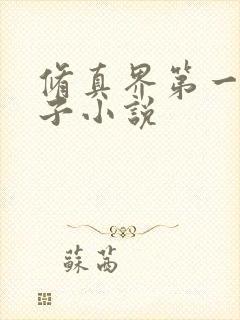 脩真界第一
子小說
蘇茜